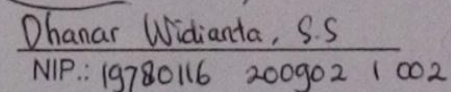 Dhanar Widianta, S.S
NIP.: 19780116 200902 1 002